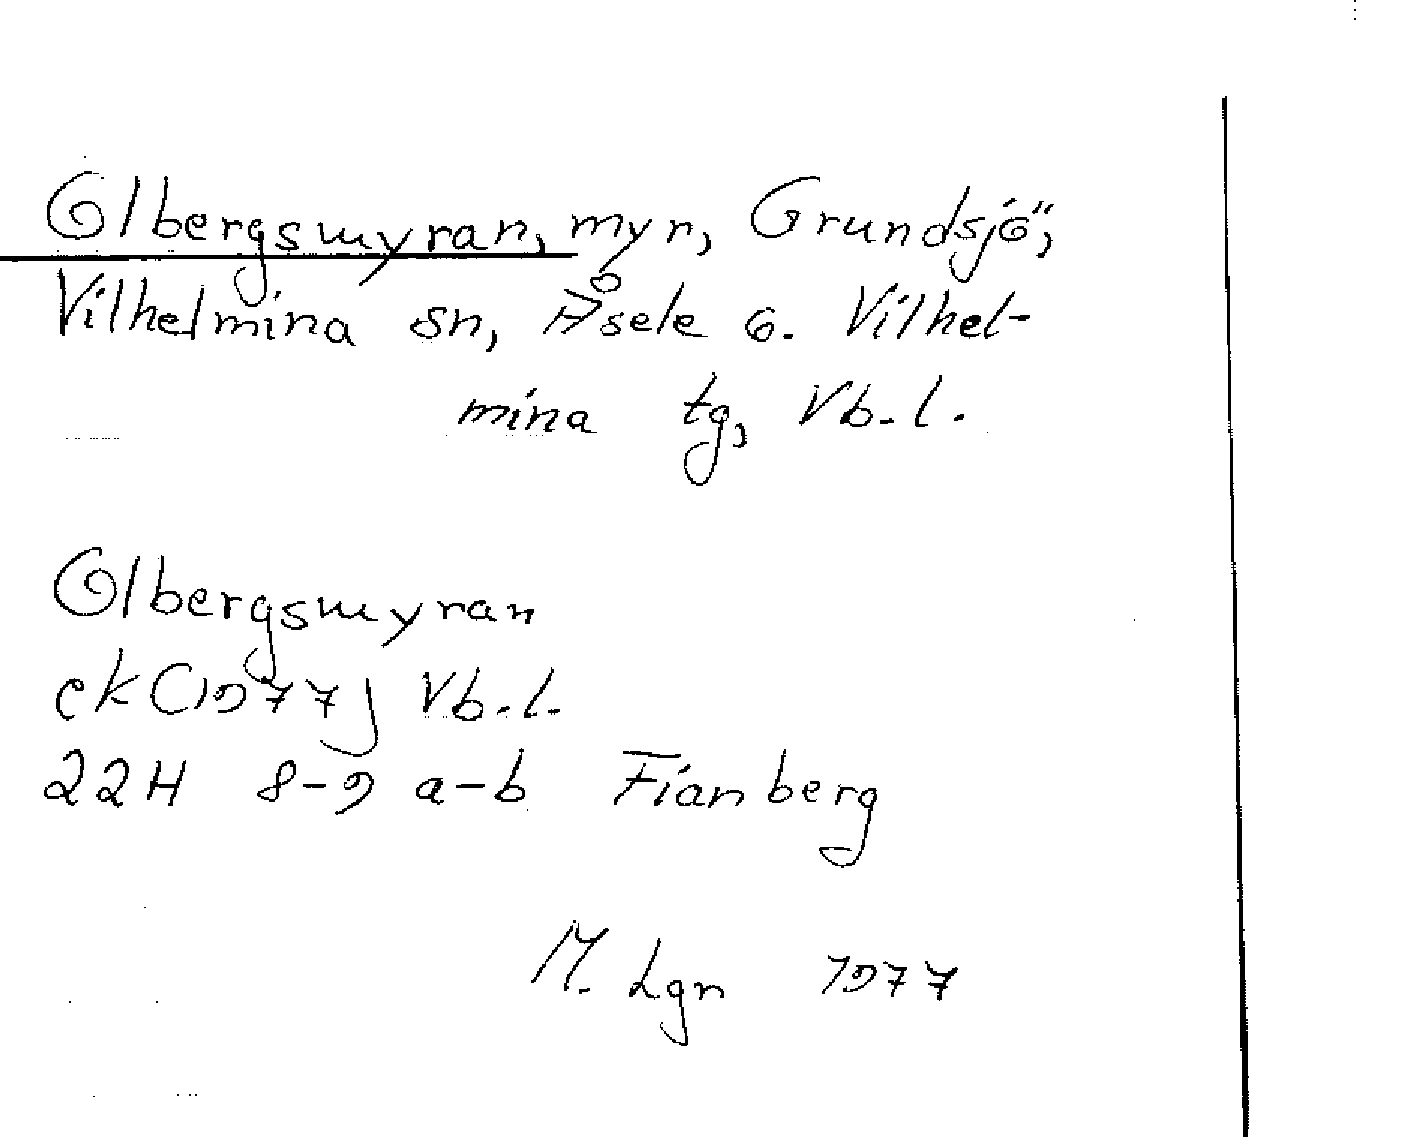 Olbergsmyran, myr, Grundsjö,
Vilhelmina sn, Åsele o. Vilhel-
mina tg, Vb. l.
Olbergsmyran
ek (1977) Vb. l.
22H 8-9 a-b Fianberg
M. Lgn 1977